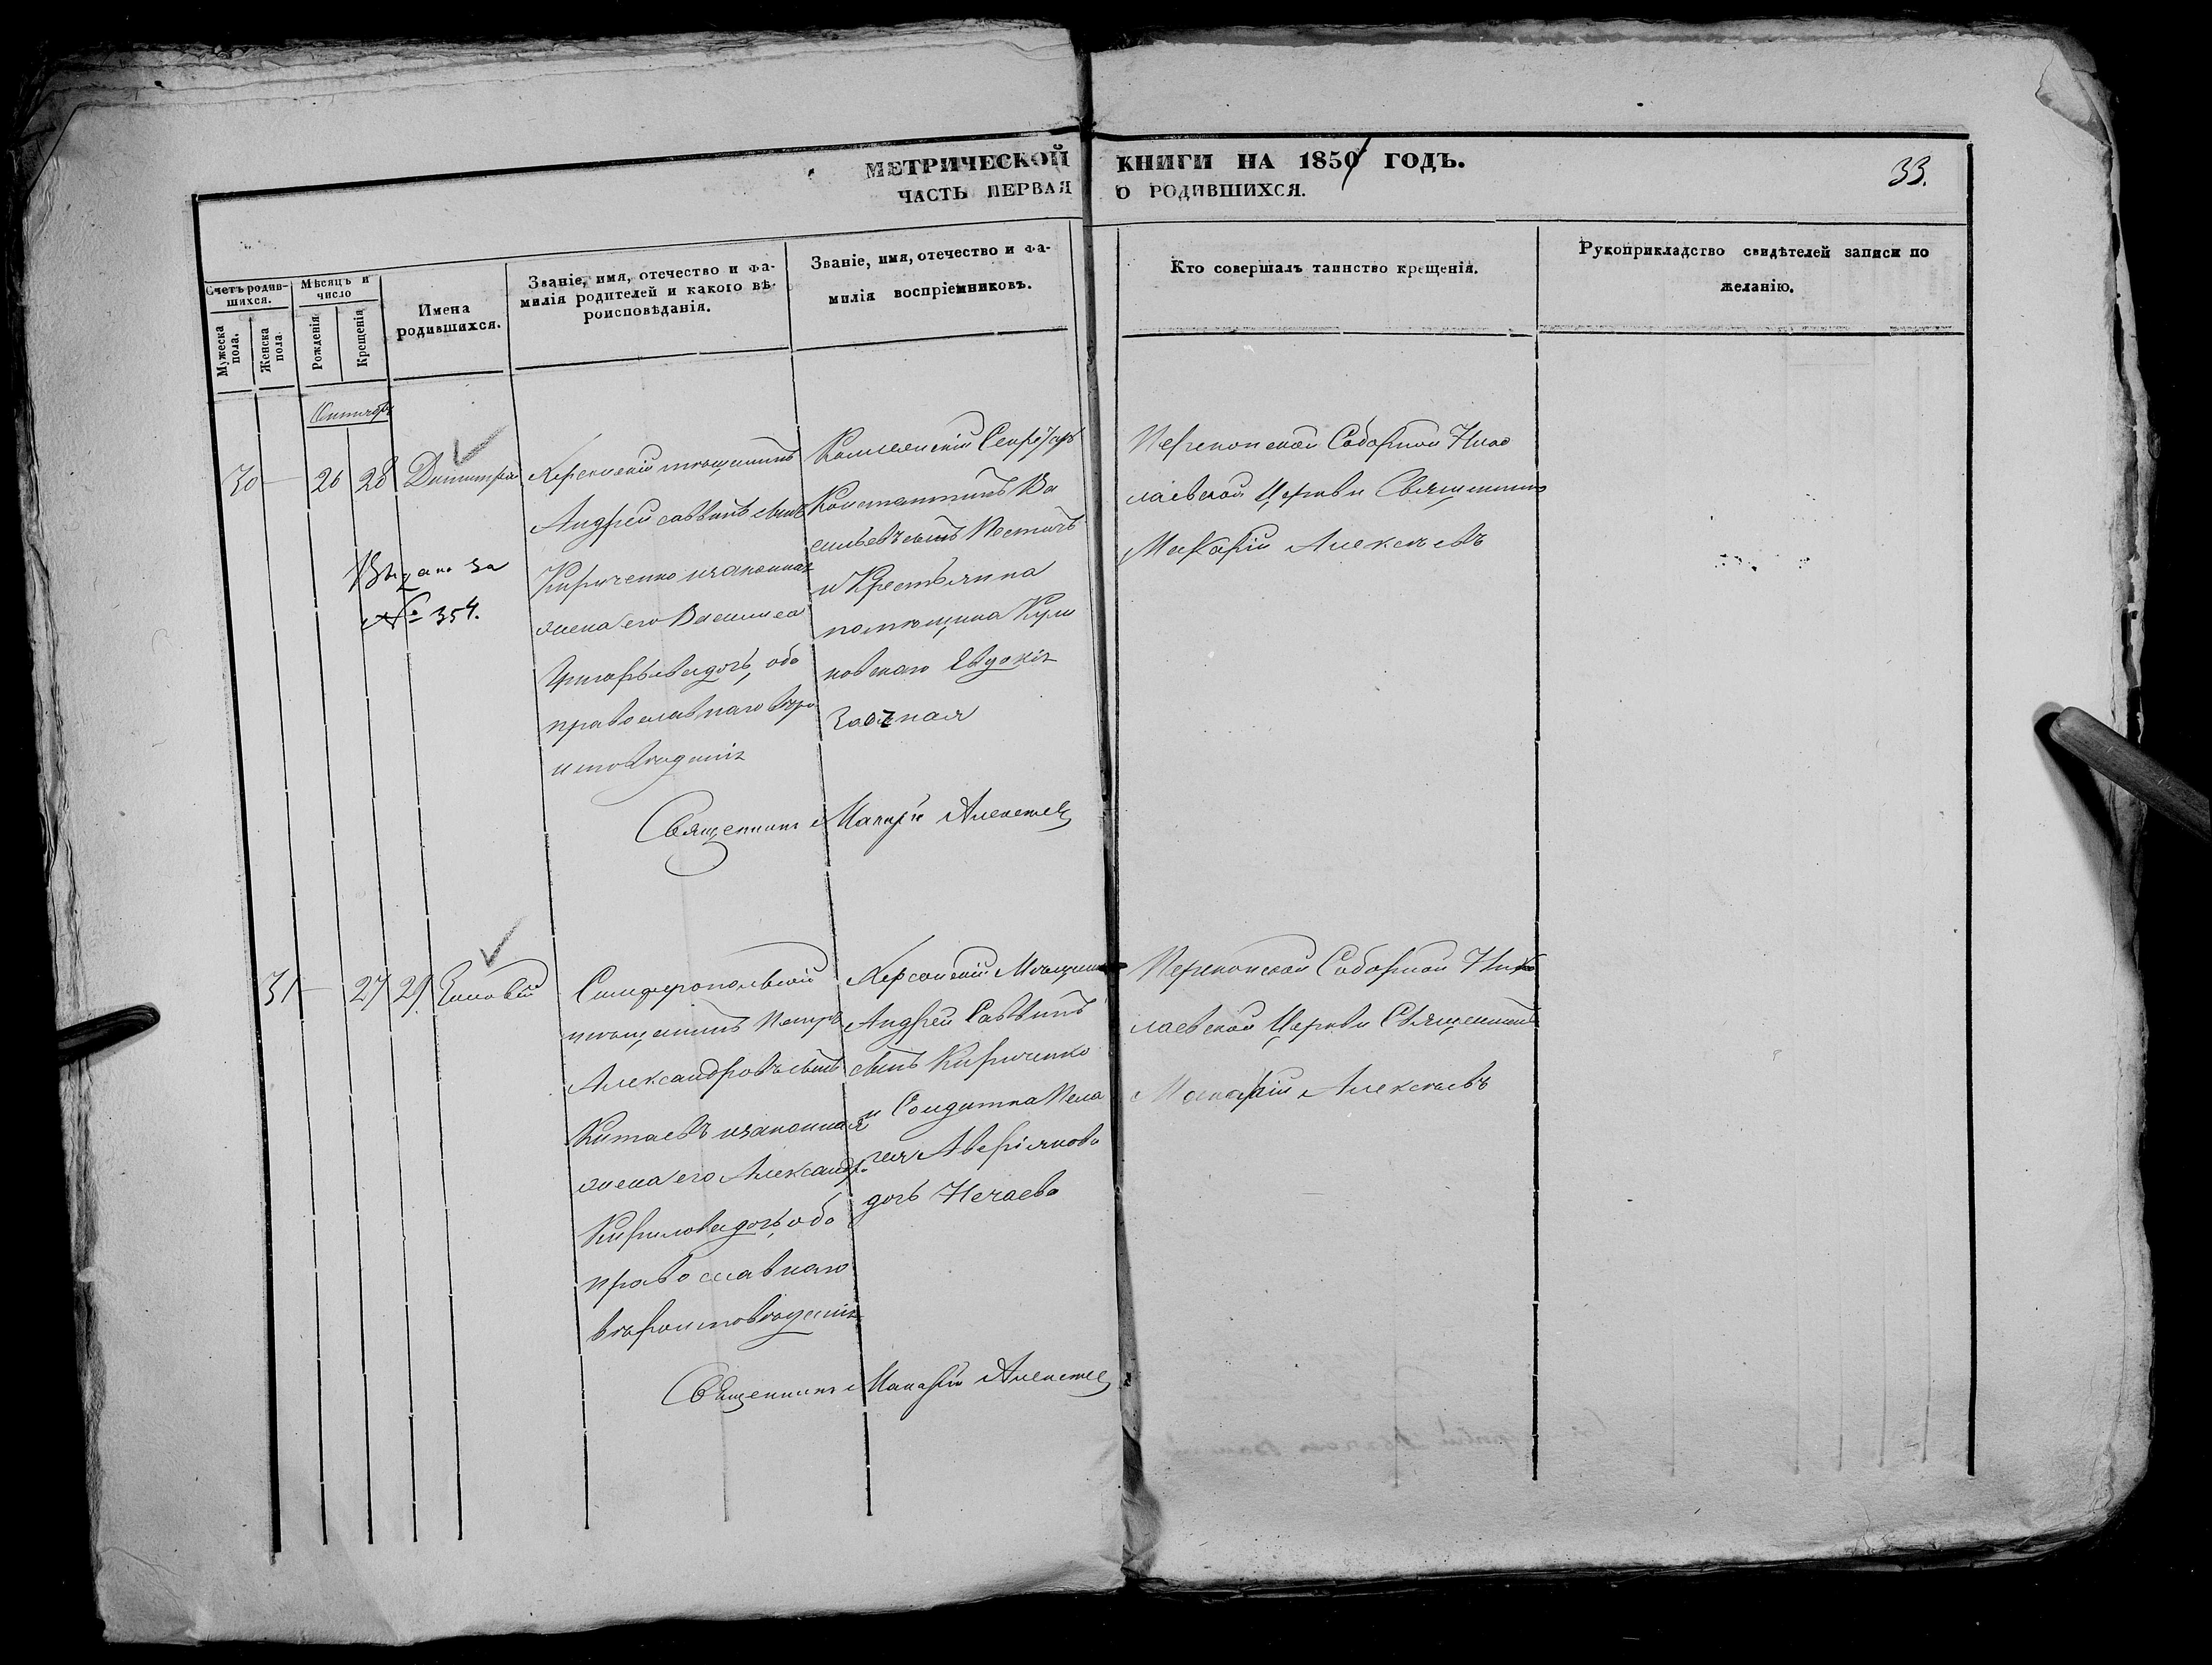 МЕТРИЧЕСКОЙ КНИГИ НА 1850 ГОДЪ.
33.
ЧАСТЬ ПЕРВАЯ О РОДИВШИХСЯ.
Счетъ родив-
шихся.
Мужеска пола.
Женска пола.
Мѣсяцъ и
число
Рожденія
Крещенія
Имена
родившихся.
Званіе, имя, отечество и фа-
милія родителей и какого вѣ-
роисповѣданія.
Званіе, имя, отечество и фа-
милія воспріемниковъ.
Кто совершалъ таинство крещенія.
Рукоприкладство свидѣтелей записи по
желанію.
30 — 26 28 Димитрій
Выдано за
№ 354.
Херсонскій мѣщанинъ
Андрей Саввинъ сынъ
Кириченко и законная
жена его Василиса
Григорьева дочь, оба
православнаго вѣро
исповѣданія
Коллежскій Секретарь
Константинъ Ва
сильевъ сынъ
и Крестьянка
помѣщика
Евдокія
Перекопской Соборной Нико
лаевской Церкви Священникъ
Макарій Алексѣевъ
Священникъ Макарій Алексѣевъ
31 — 27 29 Зиновій
Симферопольскій
мѣщанинъ Петръ
Александровъ сынъ
Китаевъ и законная
жена его Александра
Кирилова дочь, оба
православнаго
вѣроисповѣданія
Херсонскій Мѣщанин
Андрей Саввинъ
сынъ Кириченко
и Солдатка Пела
гея Аверіянова
дочь Нечаева
Перекопской Соборной Нико
лаевской Церкви Священникъ
Макарій Алексѣевъ
Священникъ Макарій Алексѣевъ